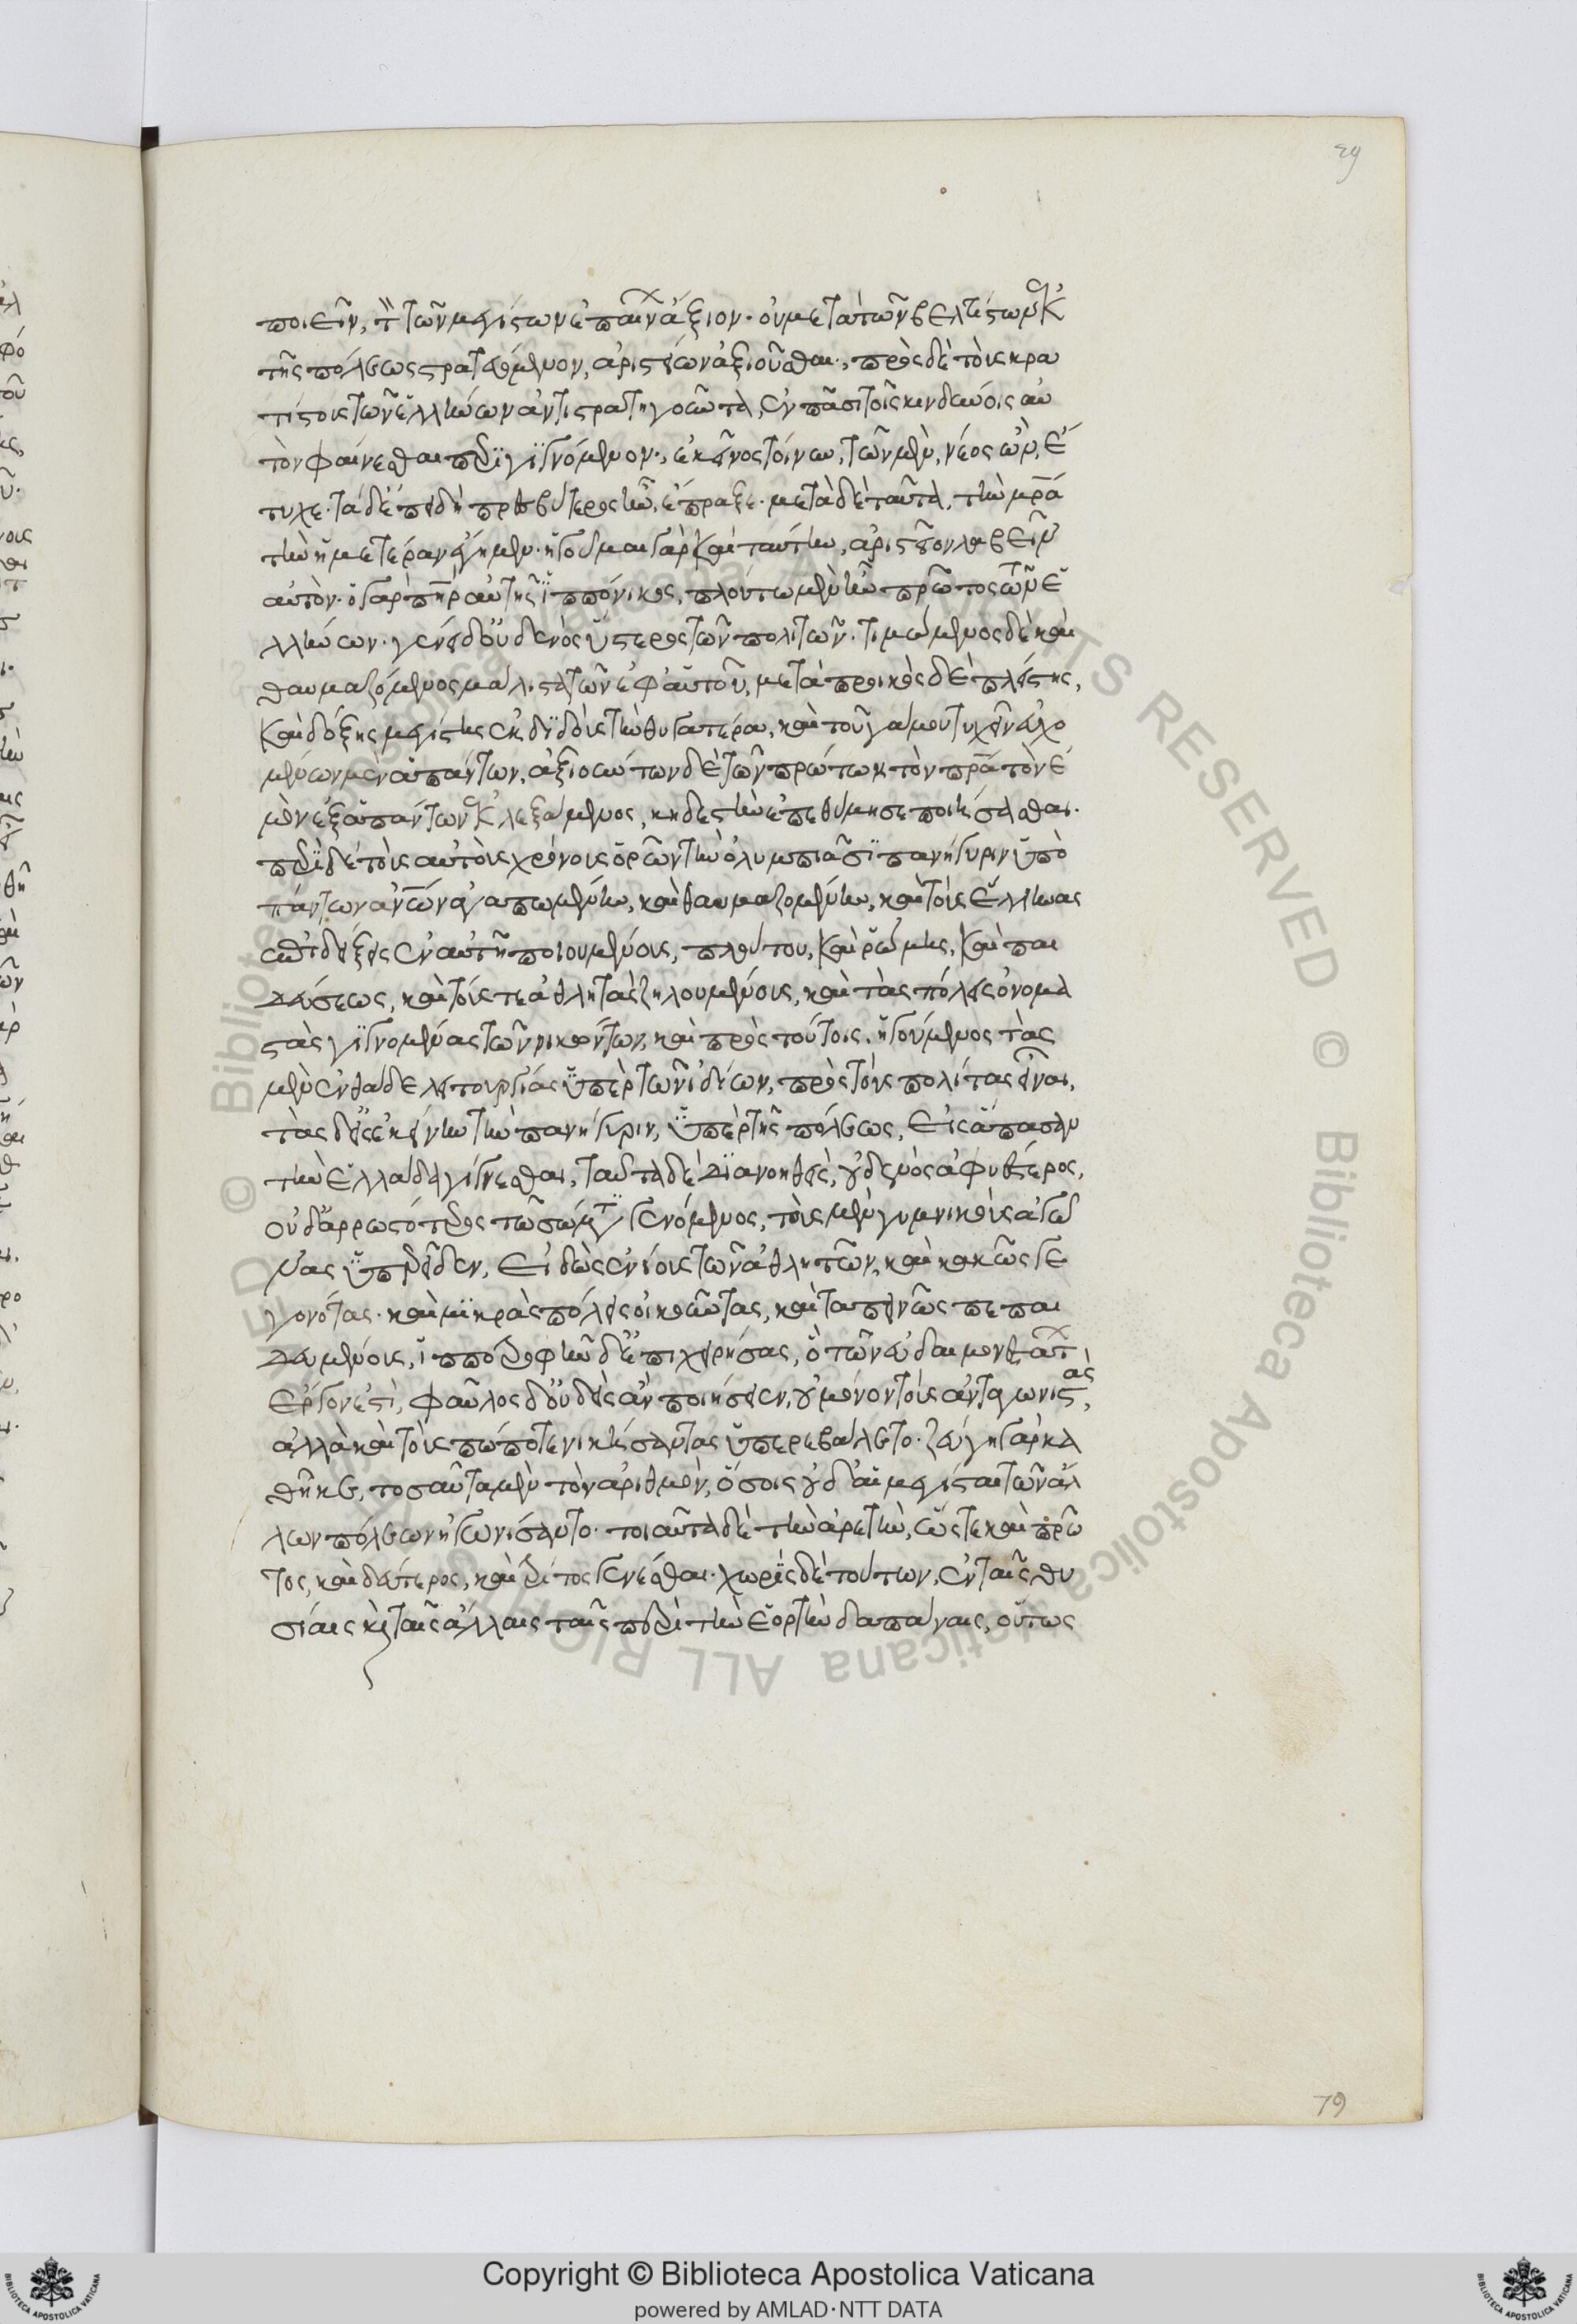 29
ποιεῖν, τί τῶν μεγίστων ἐπαίνων ἄξιον· οὐ μετὰ τῶν βελτίστων ἐκ
τῆς πόλεως στρατευόμενον, ἀριστείων ἀξιοῦσθαι· πρὸς δὲ τοὺς κρα
τίστους τῶν ἑλλήνων ἀντιστρατηγοῦντα, ἐν πᾶσι τοῖς κινδύνοις αὐ
τὸν φαίνεσθαι περιγιγνόμενον· ἐκεῖνος τοίνυν, τῶν μὲν, νέος ὢν, ἔ
τυχε· τὰ δ' ἐπειδὴ πρεσβύτερος ἦν, ἔπραξε· μετὰ δὲ ταῦτα, τὴν μρα
τὴν ἡμετέραν ἔγημεν· ἡγοῦμαι γὰρ καὶ ταύτην, ἀριστεῖον λαβεῖν
αὐτόν· ὁ γὰρ πηρ αὐτῆς ἱππόνικος, πλούτῳ μὲν ἦν πρῶτος τῶν ἑ
λλήνων· γένει δ' οὐδενὸς ὕστερος τῶν πολιτῶν· τιμώμενος δὲ καὶ
θαυμαζόμενος μάλιστα τῶν ἐφ' αὑτοῦ, μετὰ προικὸς δὲ πλείστης,
καὶ δόξης μεγίστης ἐκδιδοὺς τὴν θυγατέρα, καὶ τοῦ γάμου τυχεῖν εὐχο
μένων μὲν ἁπάντων, ἀξιούντων δὲ τῶν πρώτων, τὸν πρα τὸν ἐ
μὸν ἐξ ἁπάντων ἐκλεξάμενος, κηδεστὴν ἐπεθύμησε ποιήσασθαι·
περὶ δὲ τοὺς αὐτοὺς χρόνους ὁρῶν τὴν ὀλυμπιᾶσι πανήγυριν ὑπὸ
πάντων ἀνων ἀγαπωμένην, καὶ θαυμαζομένην, καὶ τοὺς ἕλληνας
ἐπίδειξιν ἐν αὐτῇ ποιουμένους, πλούτου, καὶ ῥώμης, καὶ παι
δεύσεως, καὶ τούς τε ἀθλητὰς ζηλουμένους, καὶ τὰς πόλεις ὀνομα
στὰς γιγνομένας τῶν νικώντων, καὶ πρὸς τούτοις, ἡγούμενος τὰς
μὲν ἐνθάδε λειτουργίας ὑπὲρ τῶν ἰδίων, πρὸς τοὺς πολίτας εἶναι,
τὰς δ' εἰς ἐκείνην τὴν πανήγυριν, ὑπὲρ τῆς πόλεως, εἰς ἅπασαν
τὴν ἑλλάδα γίγνεσθαι, ταῦτα δὲ διανοηθεὶς, οὐδενὸς ἀφυέστερος,
οὐδ' ἀρρωστότερος τῷ σώματι γενόμενος, τοὺς μὲν γυμνικοὺς ἀγῶ
νας ὑπερεῖδεν, εἰδὼς ἐνίους τῶν ἀθλητῶν, καὶ κακῶς γε
γονότας· καὶ μικρὰς πόλεις οἰκοῦντας, καὶ ταπεινῶς πεπαι
δευμένους, ἱπποτροφεῖν δ' ἐπιχειρήσας, ὃ τῶν εὐδαιμονεστάτων
ἔργον ἐστὶ, φαῦλος δ' οὐδεὶς ἂν ποιήσειεν, οὐ μόνον τοὺς ἀνταγωνιστὰς,
ἀλλὰ καὶ τοὺς πώποτε νικήσαντας ὑπερεβάλετο· ζεύγη γὰρ κα
θῆκε, τοσαῦτα μὲν τὸν ἀριθμὸν, ὅσοις οὐδ' αἱ μέγισται τῶν ἄλ
λων πόλεων ἠγωνίσαντο· τοιαῦτα δὲ τὴν ἀρετὴν, ὥστε καὶ πρῶ
τος, καὶ δεύτερος, καὶ τρίτος γενέσθαι· χωρὶς δὲ τούτων, ἐν ταῖς θυ
σίαις κ ταῖς ἄλλαις ταῖς περὶ τὴν ἑορτὴν δαπάναις, οὕτως
79
© Biblioteca Apostolica Vaticana ALL RIGHTS RESERVED © Biblioteca Apostolica Vaticana ALL RIGHTS RESERVED
Copyright © Biblioteca Apostolica Vaticana
powered by AMLAD·NTT DATA
BIBLIOTECA APOSTOLICA VATICANA
BIBLIOTECA APOSTOLICA VATICANA